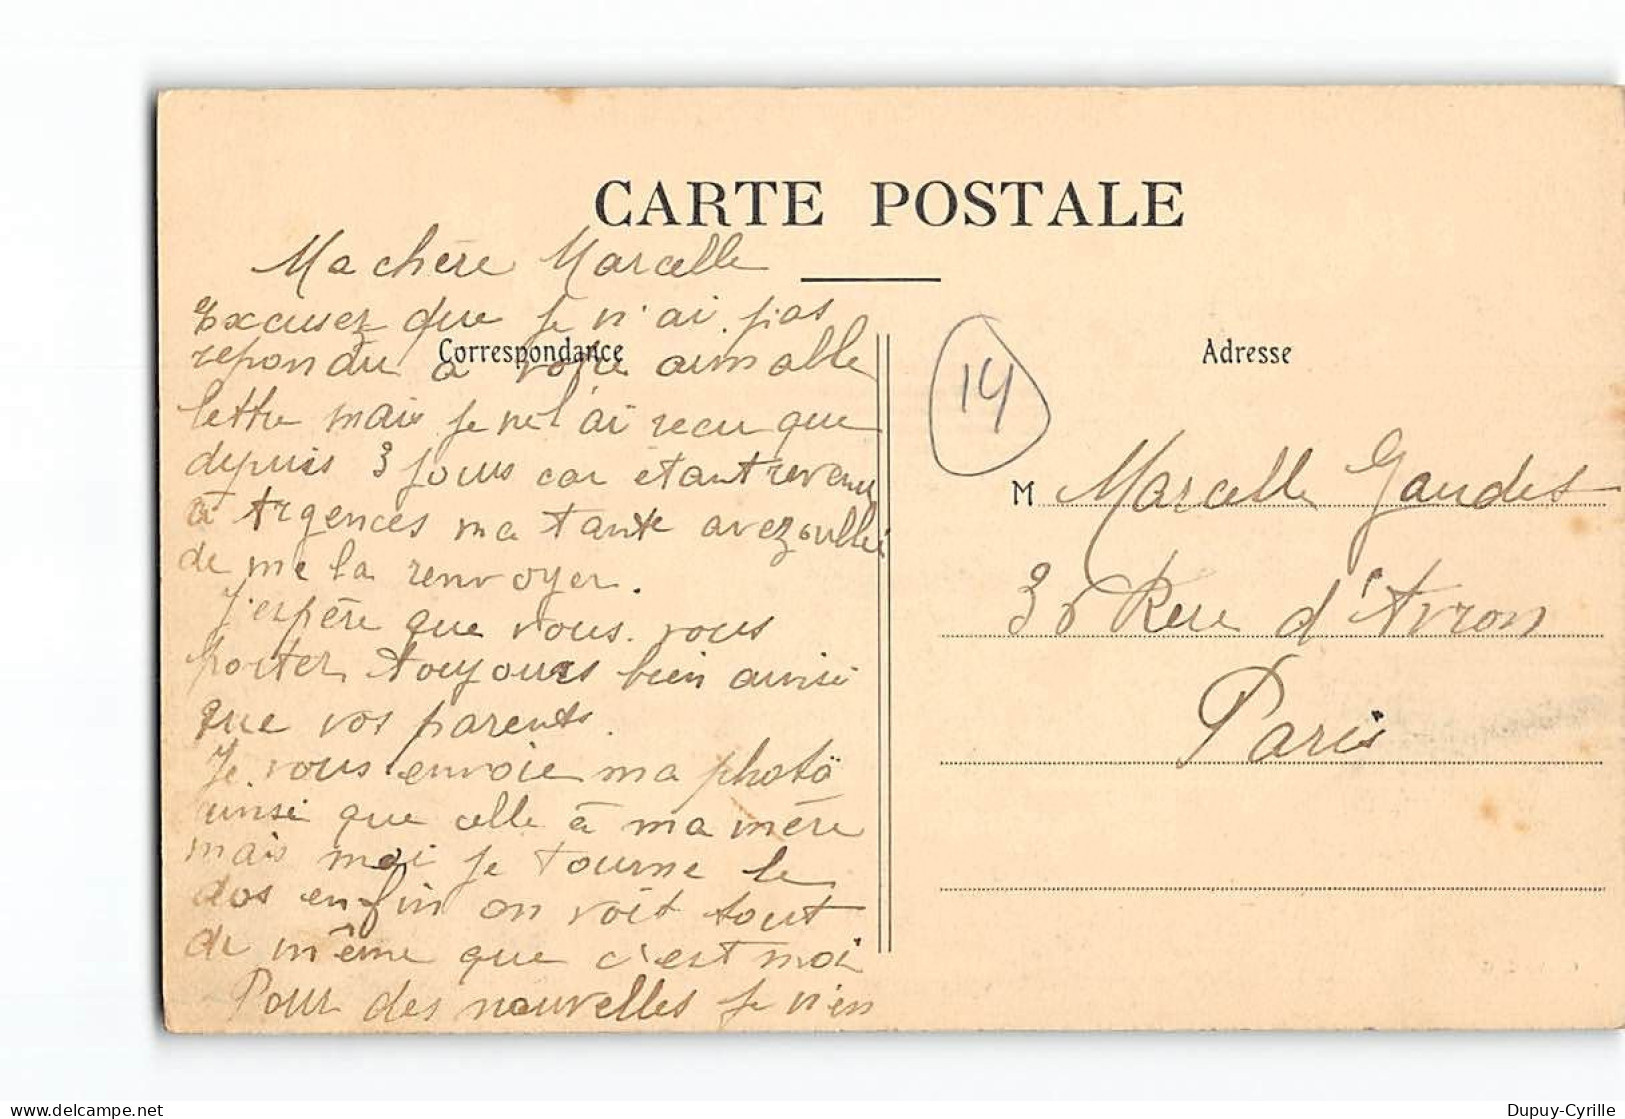 CARTE POSTALE
Ma chère Marcelle
Excusez que je n'ai pas
Correspondance
repondu a votre aimable
lettre mais je ne l'ai recu que
depuis 3 jours car étant revenu
à Argences ma tante avez oublié
de me la renvoyer.
J'espère que vous vous
porter toujours bien ainsi
que vos parents.
Je vous envoie ma photo
ainsi que celle à ma mère
mais moi je tourne le
dos enfin on voit tout
de même que c'est moi
Pour des nouvelles je n'en
14
Adresse
M Marcelle Gaudet
36 Rue d'Avron
Paris
www.delcampe.net
Dupuy-Cyrille